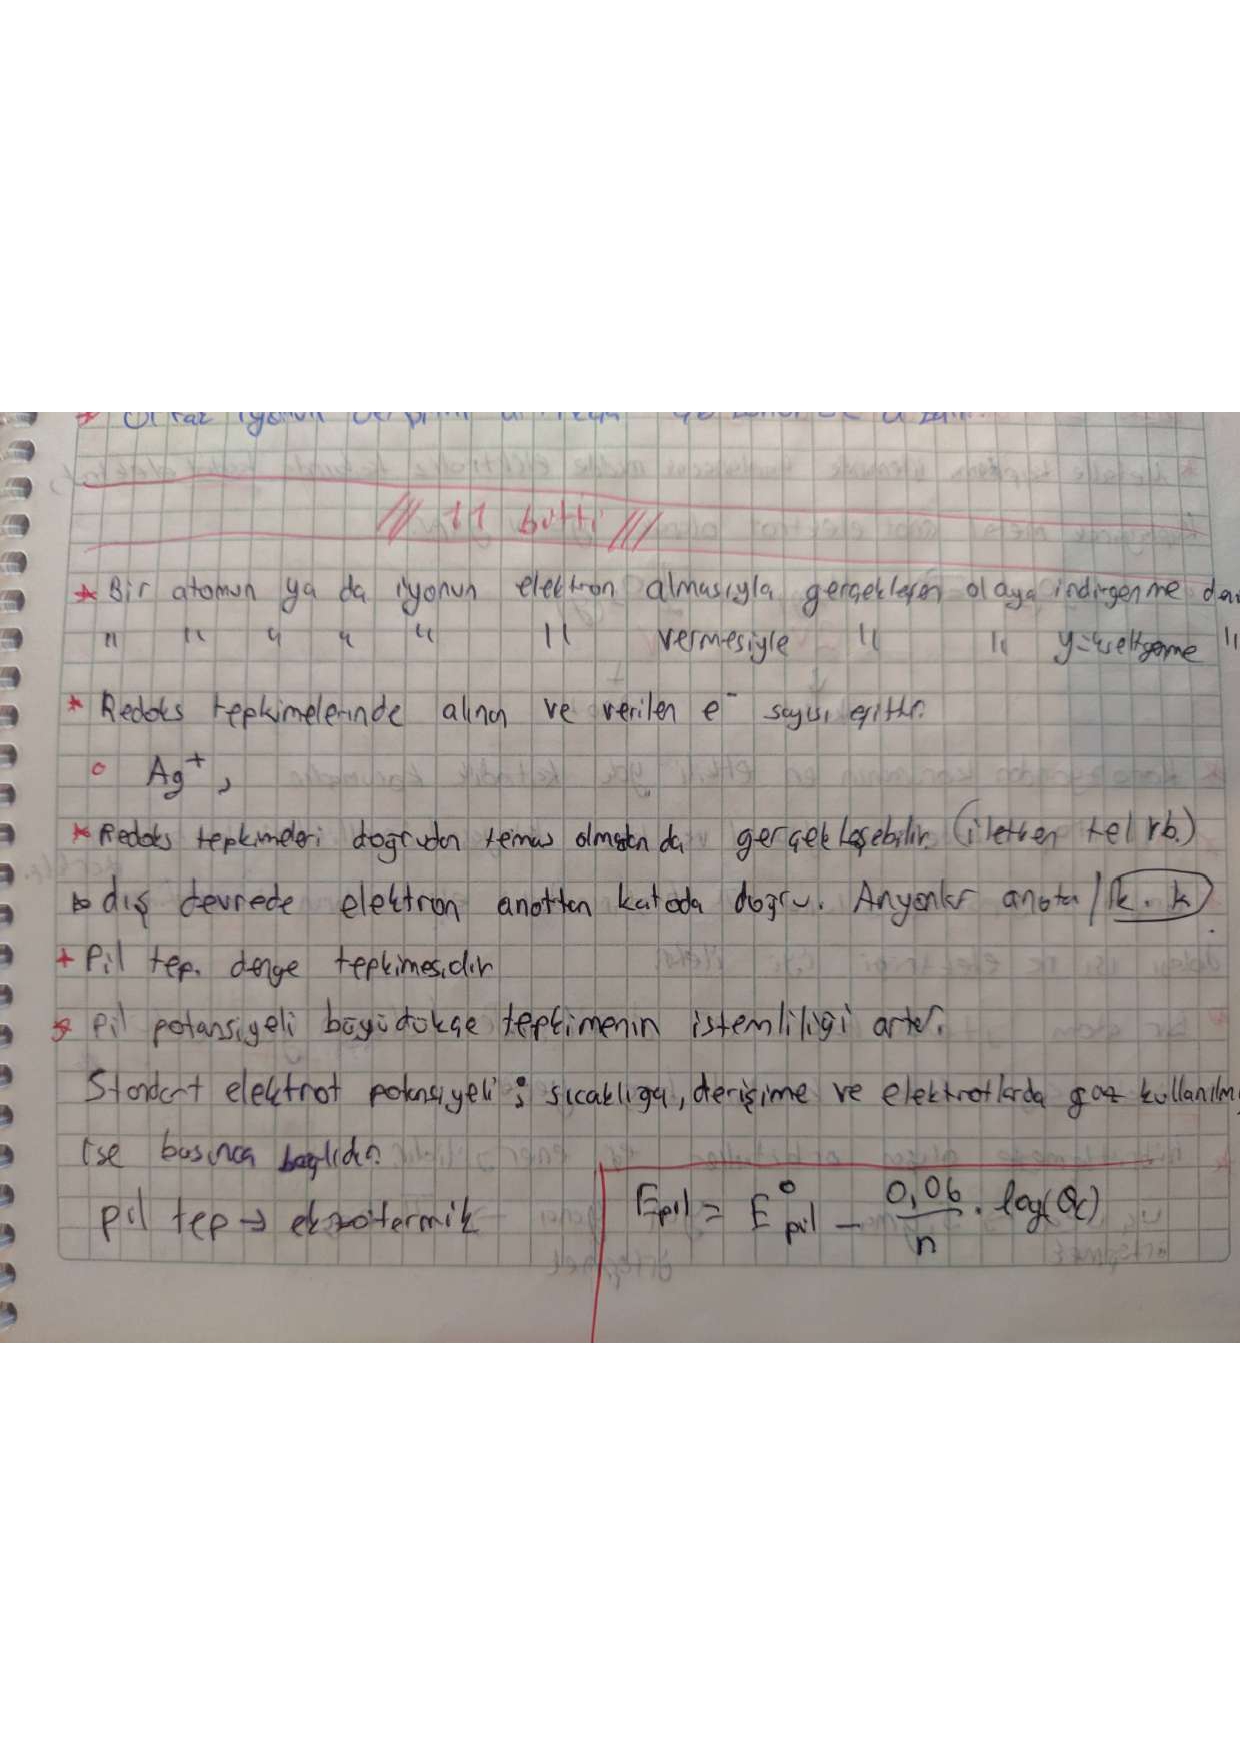 /// 11 bitti ///
* Bir atomun ya da iyonun elektron almasıyla gerçekleşen olaya indirgenme
" " " " " " vermesiyle " " yükseltgenme "
* Redoks tepkimelerinde alınan ve verilen e⁻ sayısı eşittir.
o Ag⁺,
* Redoks tepkimeleri doğrudan temas olmadan da gerçekleşebilir. (iletken tel vb.)
dış devrede elektron anottan katoda doğru. Anyonlar anota / k. k
+ Pil tep. denge tepkimesidir
* pil potansiyeli büyüdükçe tepkimenin istemliliği artar.
Standart elektrot potansiyeli ; sıcaklığa, derişime ve elektrotlarda gaz
ise basınca bağlıdır.
pil tep → ekzotermik
Epil = E°pil − 0,06/n . log(Qc)